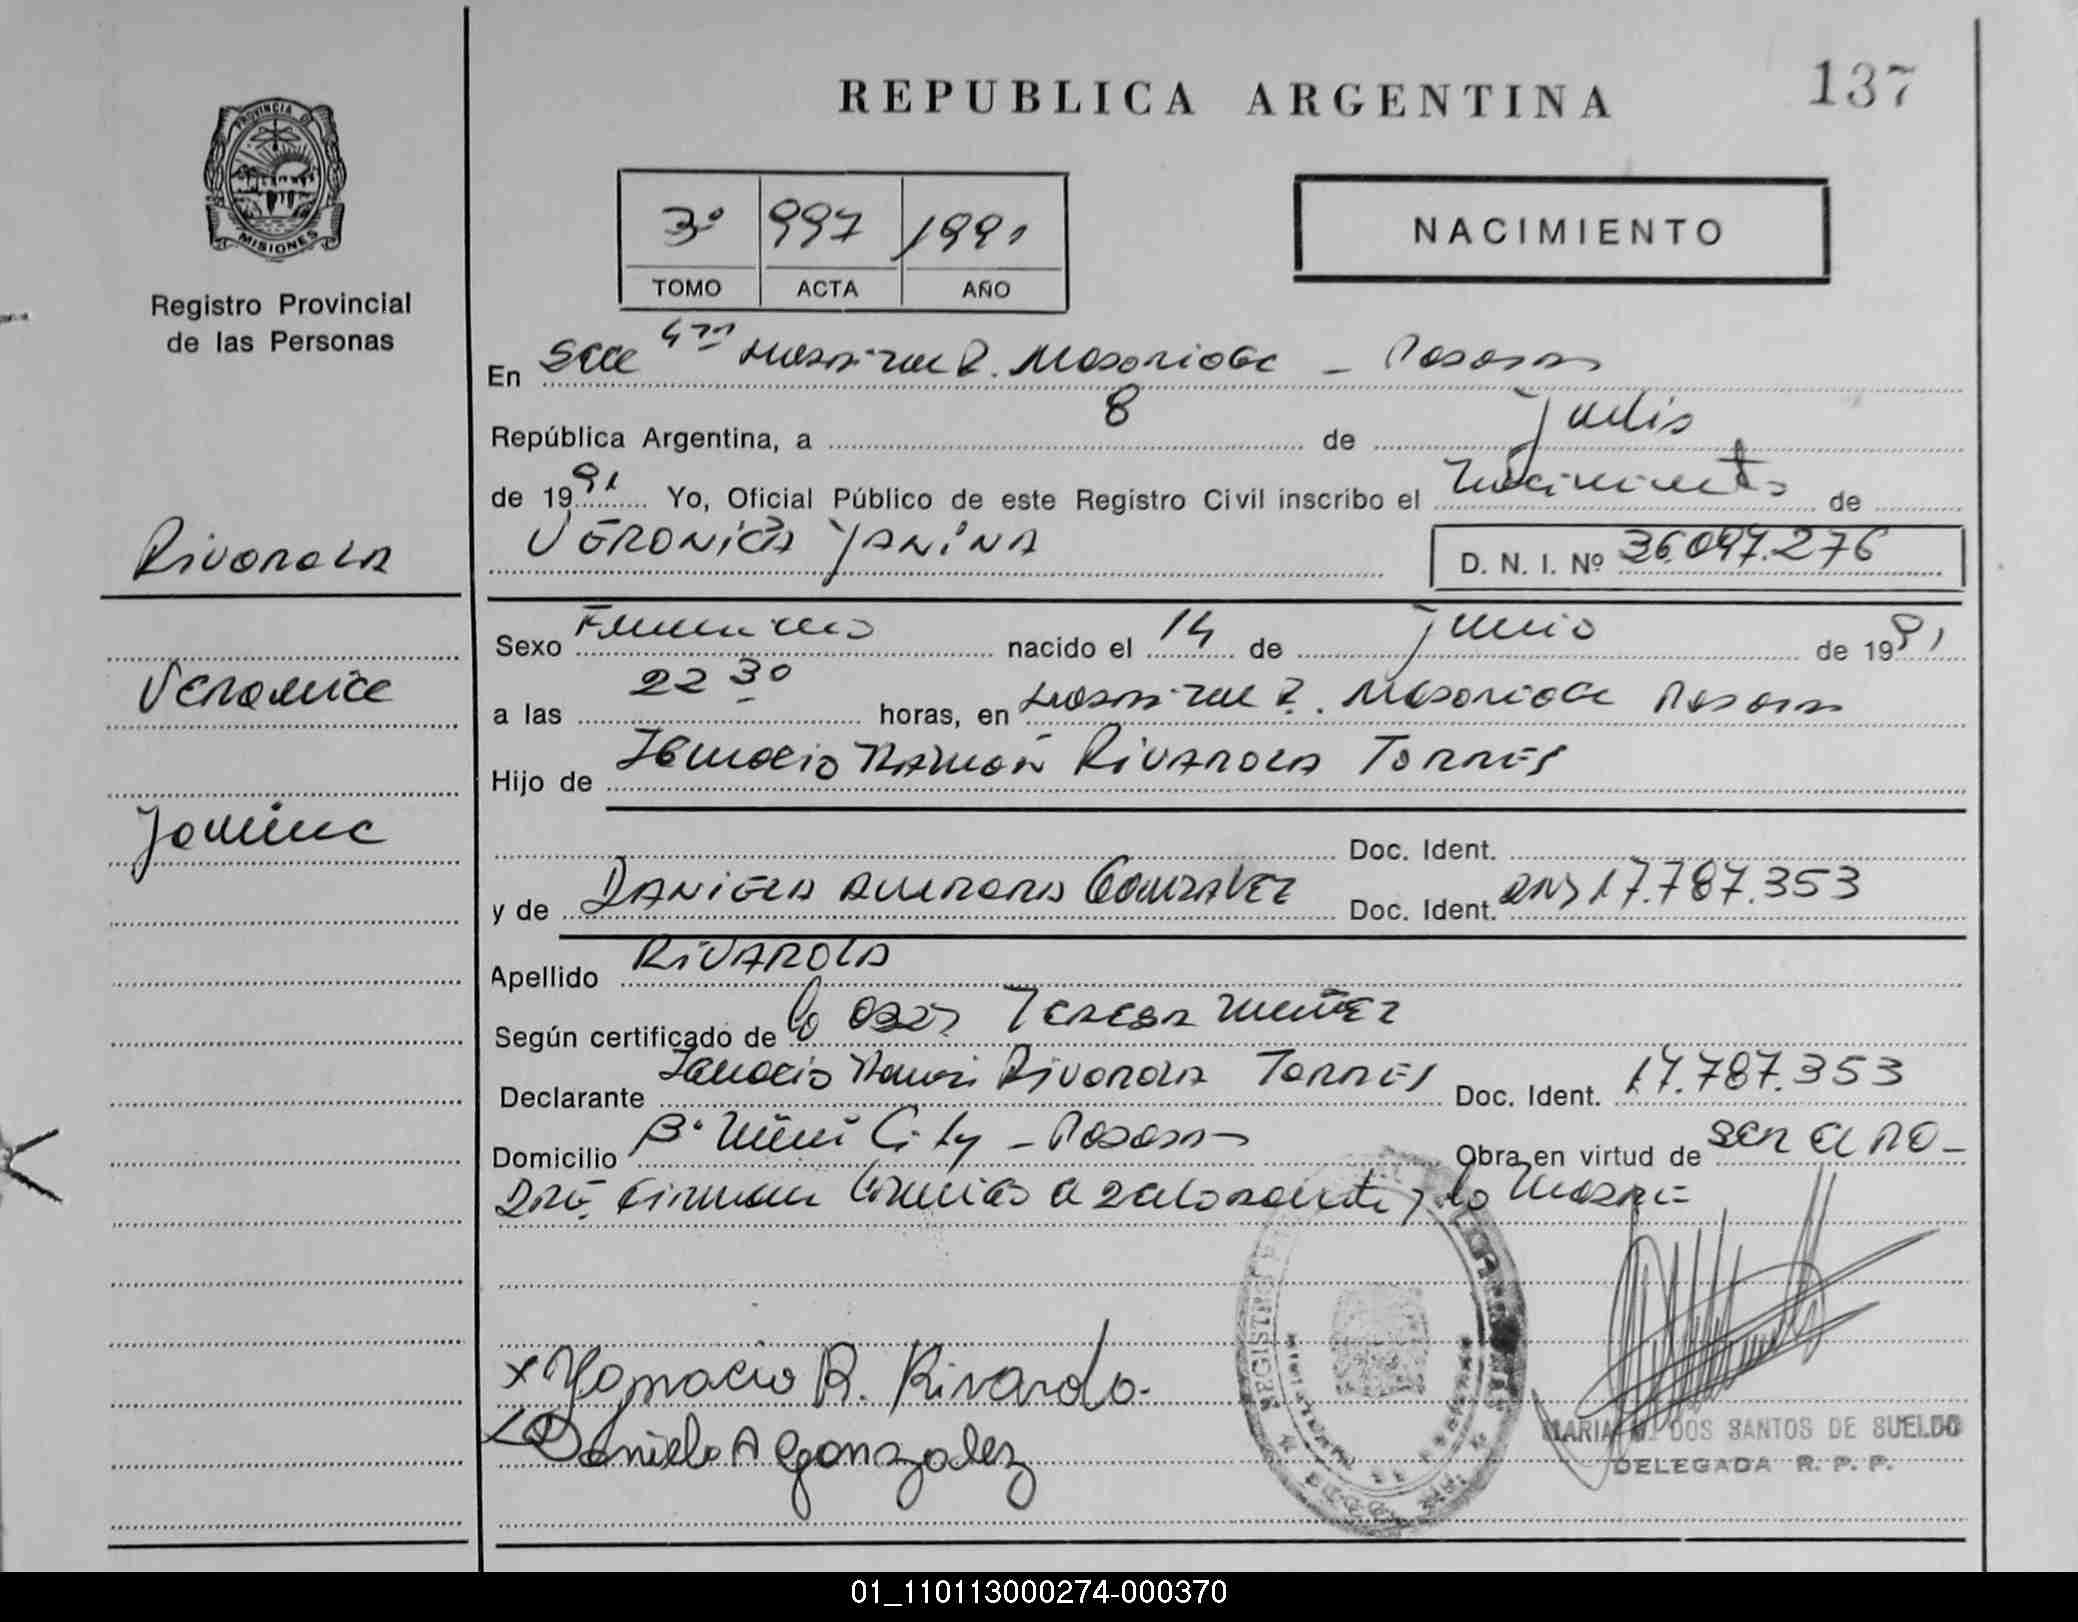 REPUBLICA ARGENTINA
137
PROVINCIA DE
MISIONES
Registro Provincial
de las Personas
3º 997 1991
TOMO ACTA AÑO
NACIMIENTO
En Secc 4ta Hospital R. Madariaga - Posadas
República Argentina, a 8 de Julio
de 1991 Yo, Oficial Público de este Registro Civil inscribo el Nacimiento de
VERONICA YANINA D. N. I. Nº 36.097.276
Rivarola
Veronica
Yanina
Sexo Femenino nacido el 14 de Junio de 1991
a las 22 30 horas, en Hospital R. Madariaga Posadas
Hijo de Ignacio Ramon RIVAROLA TORRES
Doc. Ident.
y de DANIELA AURORA GONZALEZ Doc. Ident. DNI 17.787.353
Apellido RIVAROLA
Según certificado de la Obst TERESA MUÑEZ
Declarante Ignacio Ramon Rivarola TORRES Doc. Ident. 17.787.353
Domicilio Bº Mini City - Posadas Obra en virtud de ser el PA-
DRE. Firman Conmigo el Declarante y la Madre
x Ygnacio R. Rivarola.
x Daniela A Gonzalez
MARIA DOS SANTOS DE SUELDO
DELEGADA R. P. P.
01_110113000274-000370